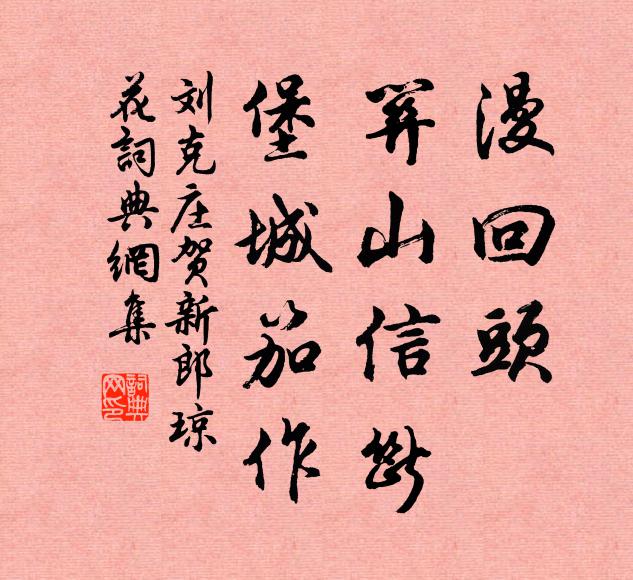 漫回頭
笄山信斷
堡城笳作
刘克庄贺新郎琼
花詞典網集
詞典
网印